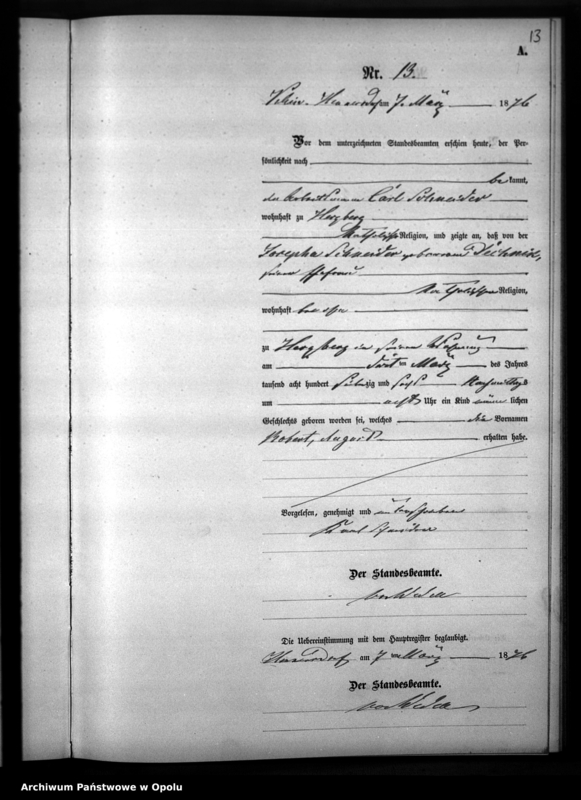 13
A.
Nr. 13.
am 7 März 1876
Vor dem unterzeichneten Standesbeamten erschien heute, der Per-
sönlichkeit nach
be kannt,
der Carl Schneider
wohnhaft zu Herzberg
Katholischer Religion, und zeigte an, daß von der
Josepha Schneider geborenen
seiner Ehefrau
Katholischer Religion,
wohnhaft bei ihm
zu Herzberg in seiner Wohnung
am März des Jahres
tausend acht hundert siebenzig und sechs Nachmittags
um acht Uhr ein Kind männlichen
Geschlechts geboren worden sei, welches die Vornamen
Robert, August erhalten habe.
Vorgelesen, genehmigt und unterschrieben
Der Standesbeamte.
Die Uebereinstimmung mit dem Hauptregister beglaubigt.
am 7 März 1876
Der Standesbeamte.
Archiwum Państwowe w Opolu